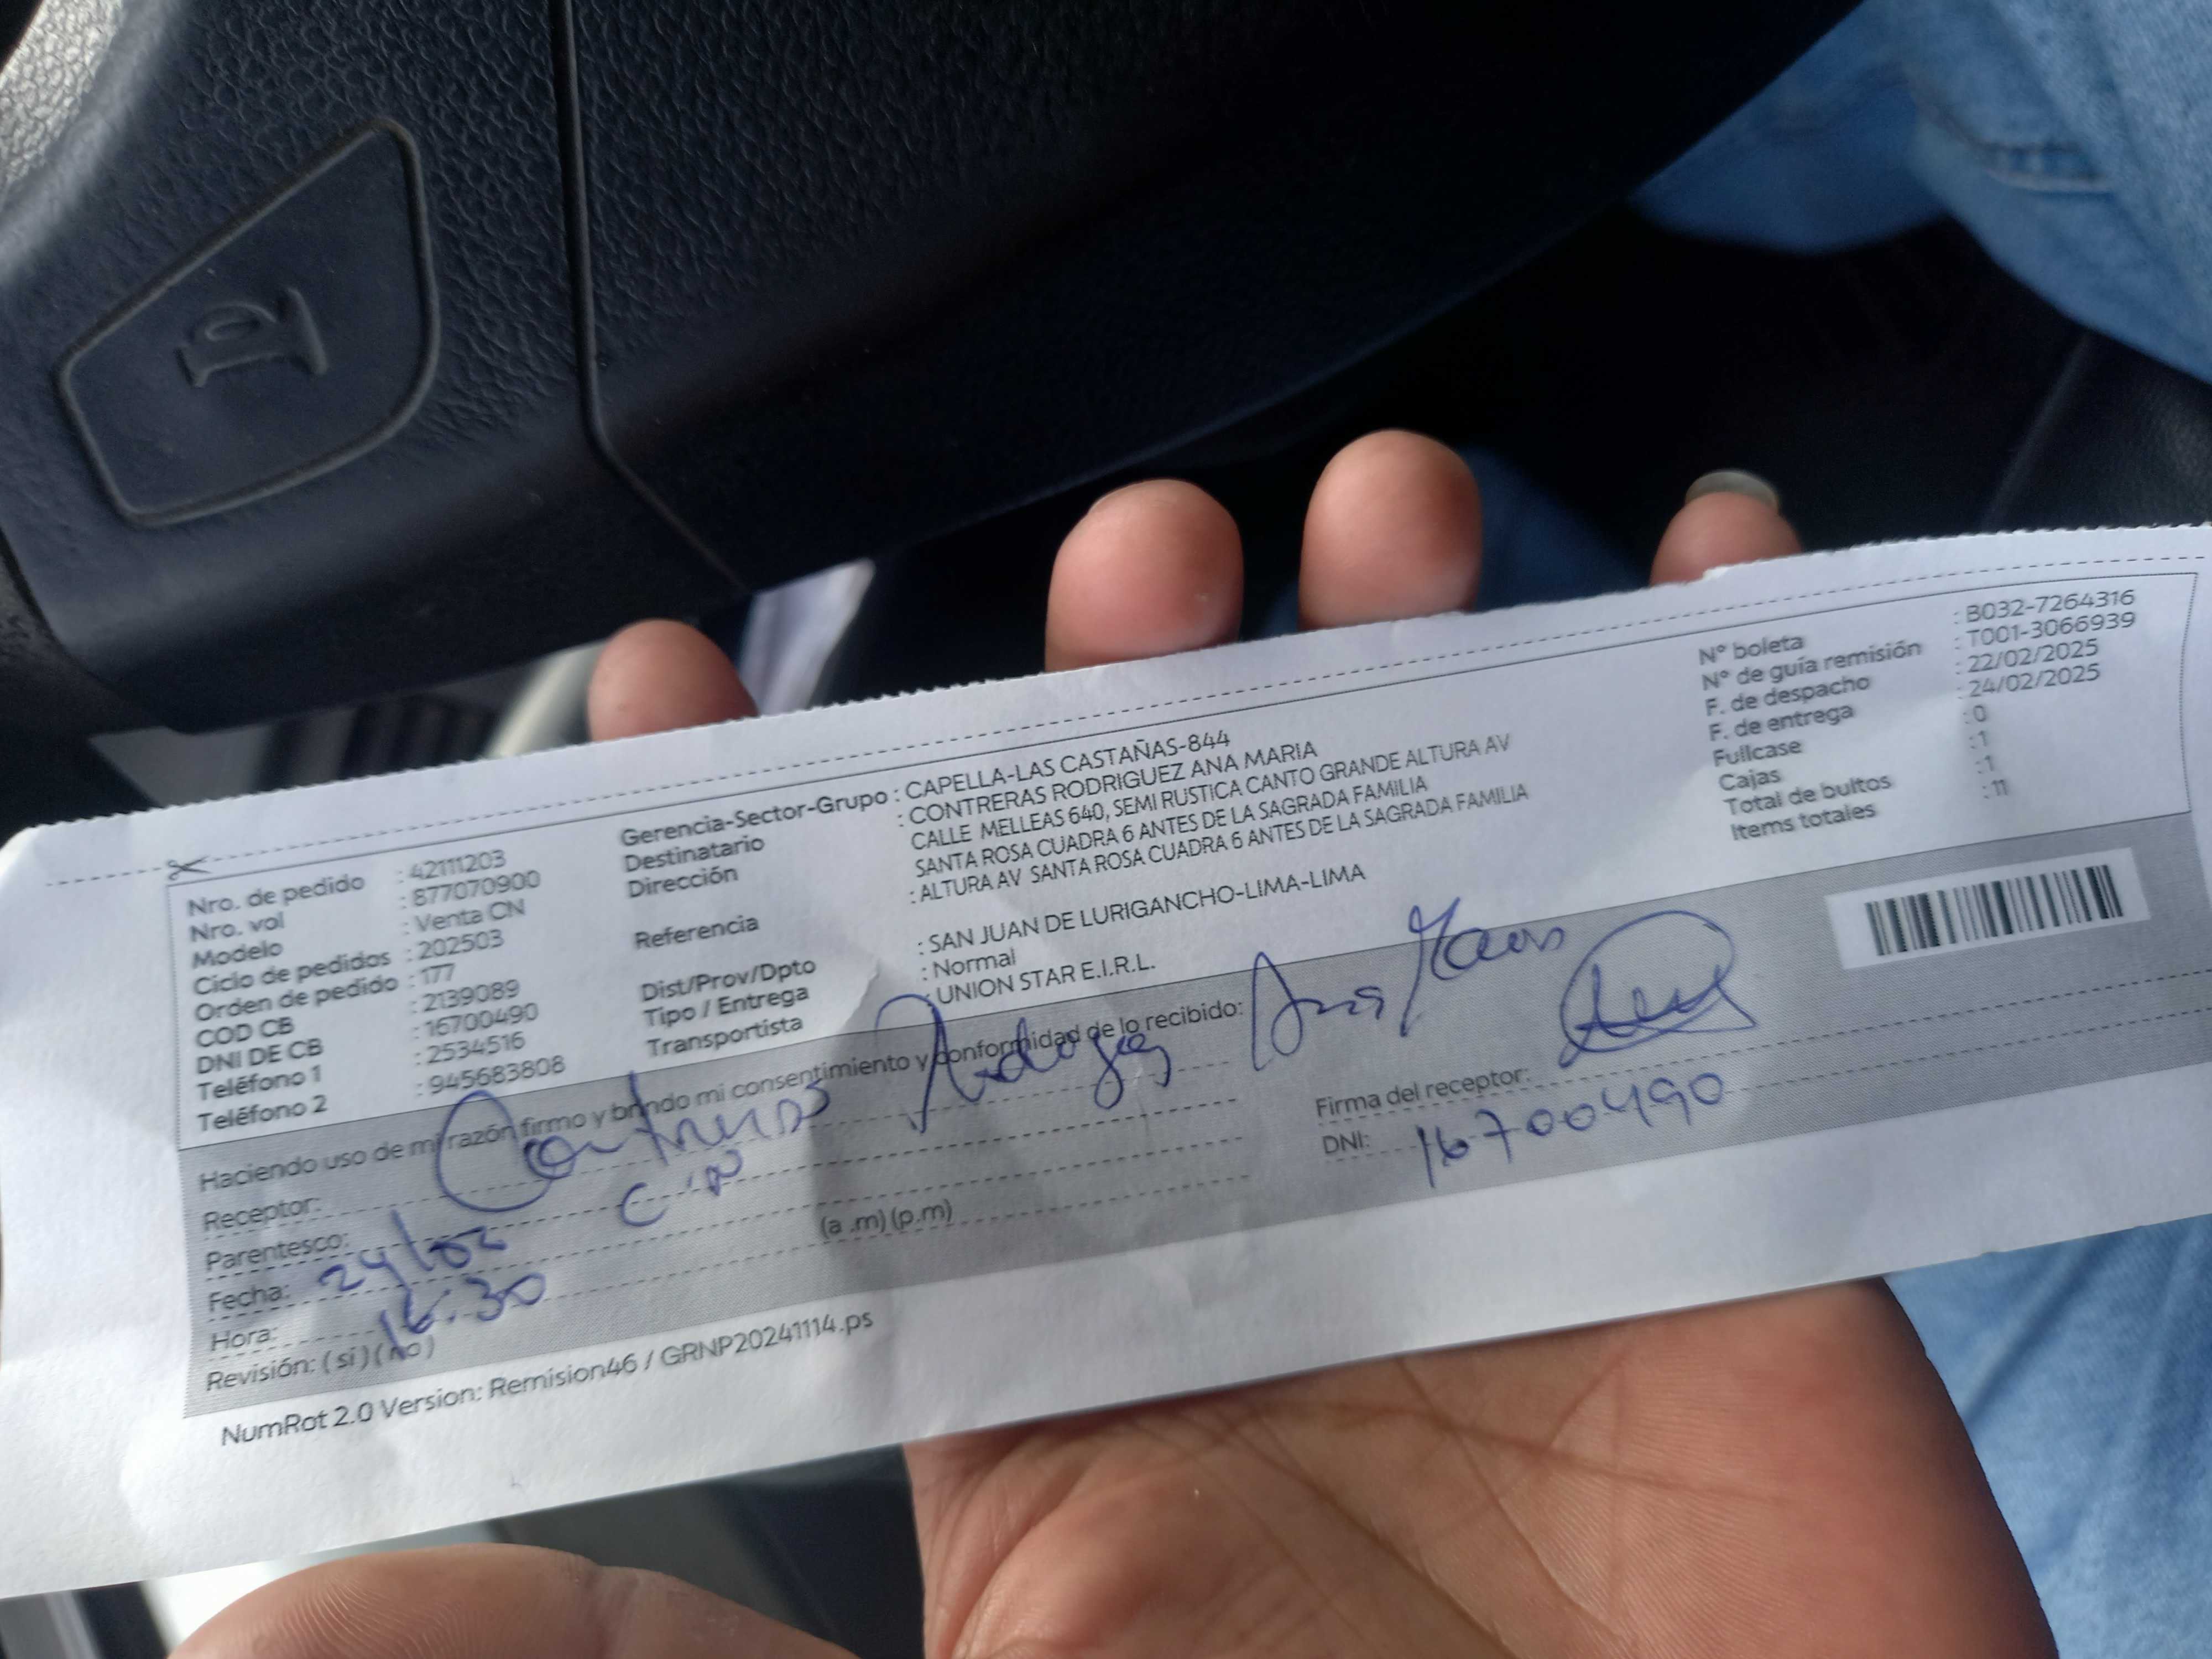 Nro. de pedido : 42111203
Nro. vol : 877070900
Modelo : Venta CN
Ciclo de pedidos : 202503
Orden de pedido : 177
COD CB : 2139089
DNI DE CB : 16700490
Teléfono 1 : 2534516
Teléfono 2 : 945683808
Gerencia-Sector-Grupo : CAPELLA-LAS CASTAÑAS-844
Destinatario : CONTRERAS RODRIGUEZ ANA MARIA
Dirección CALLE MELLEAS 640, SEMI RUSTICA CANTO GRANDE ALTURA AV
SANTA ROSA CUADRA 6 ANTES DE LA SAGRADA FAMILIA
Referencia : ALTURA AV SANTA ROSA CUADRA 6 ANTES DE LA SAGRADA FAMILIA
Dist/Prov/Dpto : SAN JUAN DE LURIGANCHO-LIMA-LIMA
Tipo / Entrega : Normal
Transportista : UNION STAR E.I.R.L.
N° boleta : B032-7264316
N° de guía remisión : T001-3066939
F. de despacho : 22/02/2025
F. de entrega : 24/02/2025
Fullcase : 0
Cajas : 1
Total de bultos : 1
Items totales : 11
Haciendo uso de mi razón firmo y brindo mi consentimiento y conformidad de lo recibido:
Receptor: Contreras Rodriguez Ana Maria
Parentesco:
Fecha: 24/02
Hora: 16:30 (a .m) (p.m)
Revisión: ( si ) ( no )
Firma del receptor:
DNI: 16700490
NumRot 2.0 Version: Remision46 / GRNP20241114.ps